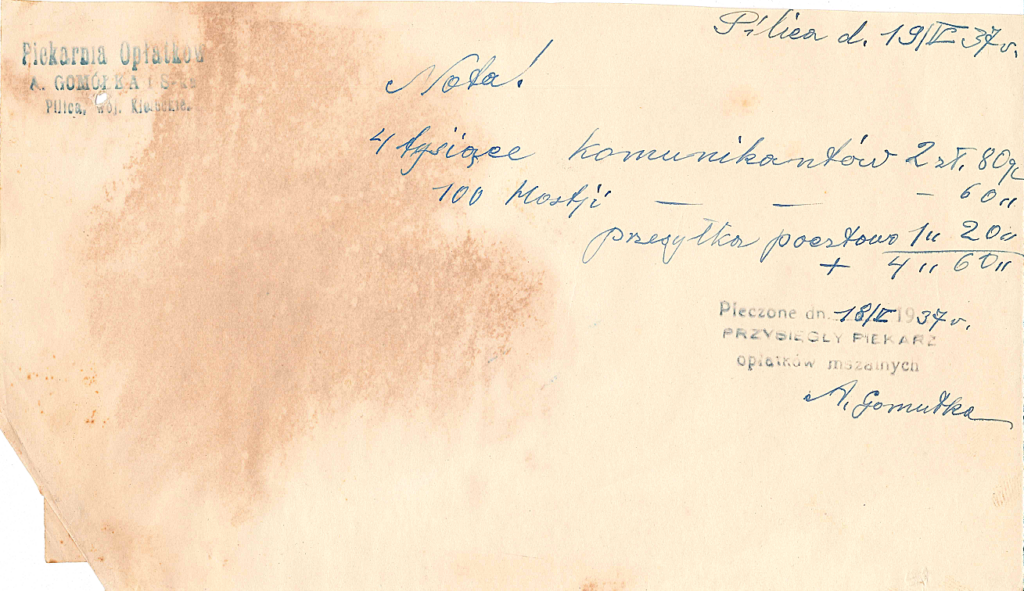 Pilica d. 19/V 37 r.
Piekarnia Opłatków
A. GOMÓŁKA i S-ka
Pilica, woj. Kieleckie.
Nota!
4 tysiące komunikantów 2 zł. 80 gr
100 Hostji — — - 60 "
przesyłka pocztowa 1 " 20 "
+ 4 " 60 "
Pieczone dn. 18/V 1937 r.
PRZYSIĘGŁY PIEKARZ
opłatków mszalnych
A. Gomułka